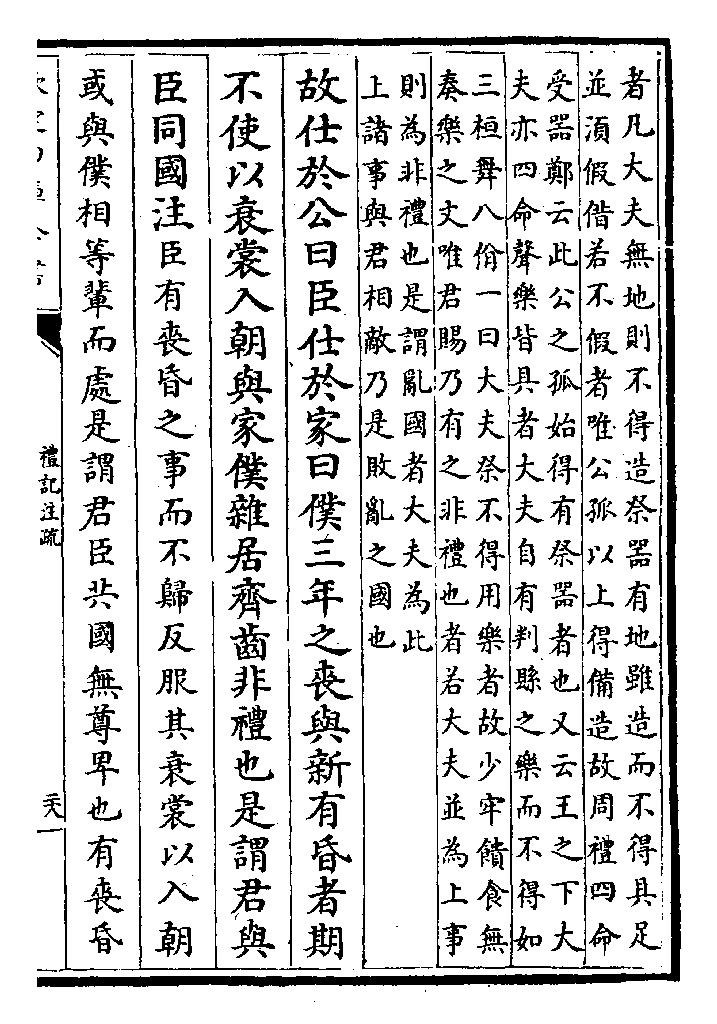 者凡大夫無地則不得造祭器有地雖造而不得具足
並湏假偕若不假者唯公孤以上得備造故周禮四命
受器鄭云此公之孤始得有祭器者也又云王之下大
夫亦四命聲樂皆具者大夫自有判縣之樂而不得如
三桓舞八佾一曰大夫祭不得用樂者故少牢饋食無
奏樂之文唯君賜乃有之非禮也者若大夫並為上事
則為非禮也是謂亂國者大夫為此
上諸事與君相敵乃是敗亂之國也
故仕於公曰臣仕於家曰僕三年之喪與新有昏者期
不使以衰裳入朝與家僕雜居齊齒非禮也是謂君與
臣同國注臣有喪昏之事而不歸反服其衰裳以入朝
或與僕相等輩而處是謂君臣共國無尊卑也有喪昏
禮記注疏
二十八